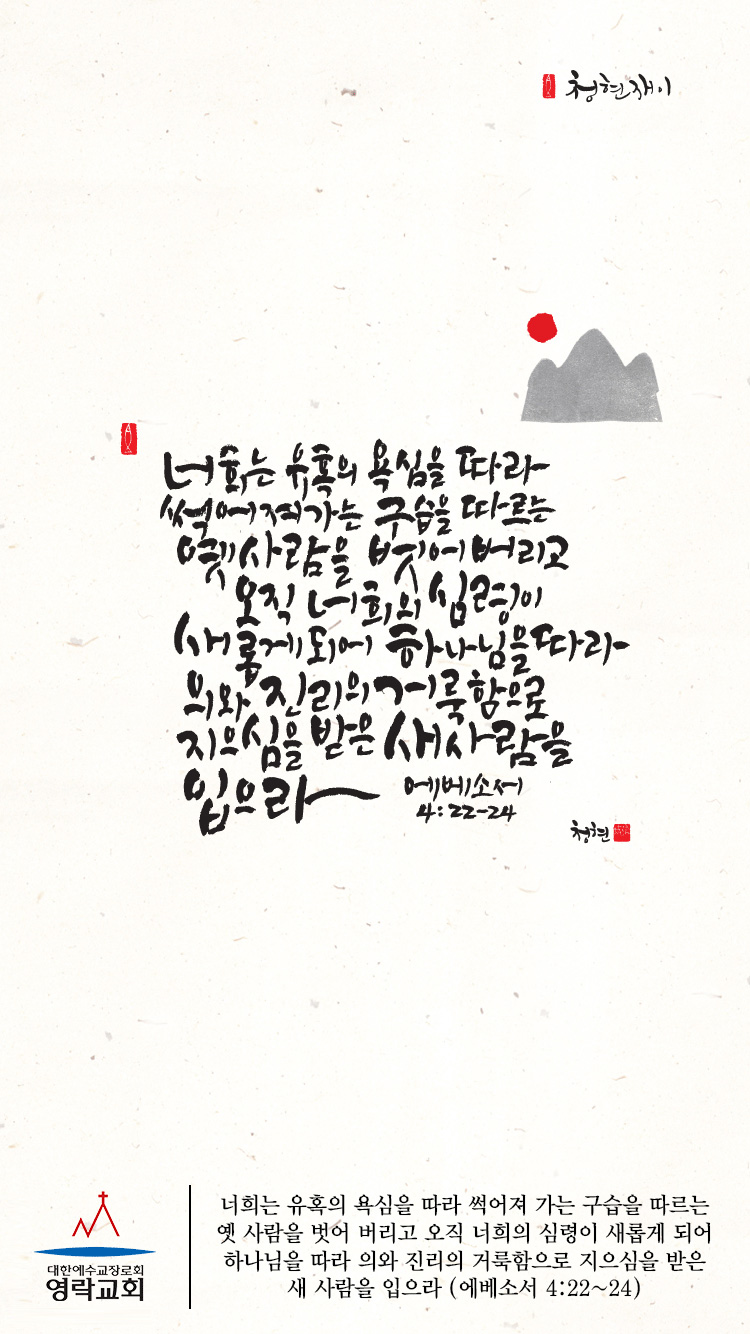 청현재이
너희는 유혹의 욕심을 따라
썩어져가는 구습을 따르는
옛사람을 벗어버리고
오직 너희의 심령이
새롭게되어 하나님을따라
의와 진리의 거룩함으로
지으심을 받은 새사람을
입으라
에베소서
4:22-24
청현
대한예수교장로회
영락교회
너희는 유혹의 욕심을 따라 썩어져 가는 구습을 따르는
옛 사람을 벗어 버리고 오직 너희의 심령이 새롭게 되어
하나님을 따라 의와 진리의 거룩함으로 지으심을 받은
새 사람을 입으라 (에베소서 4:22~24)